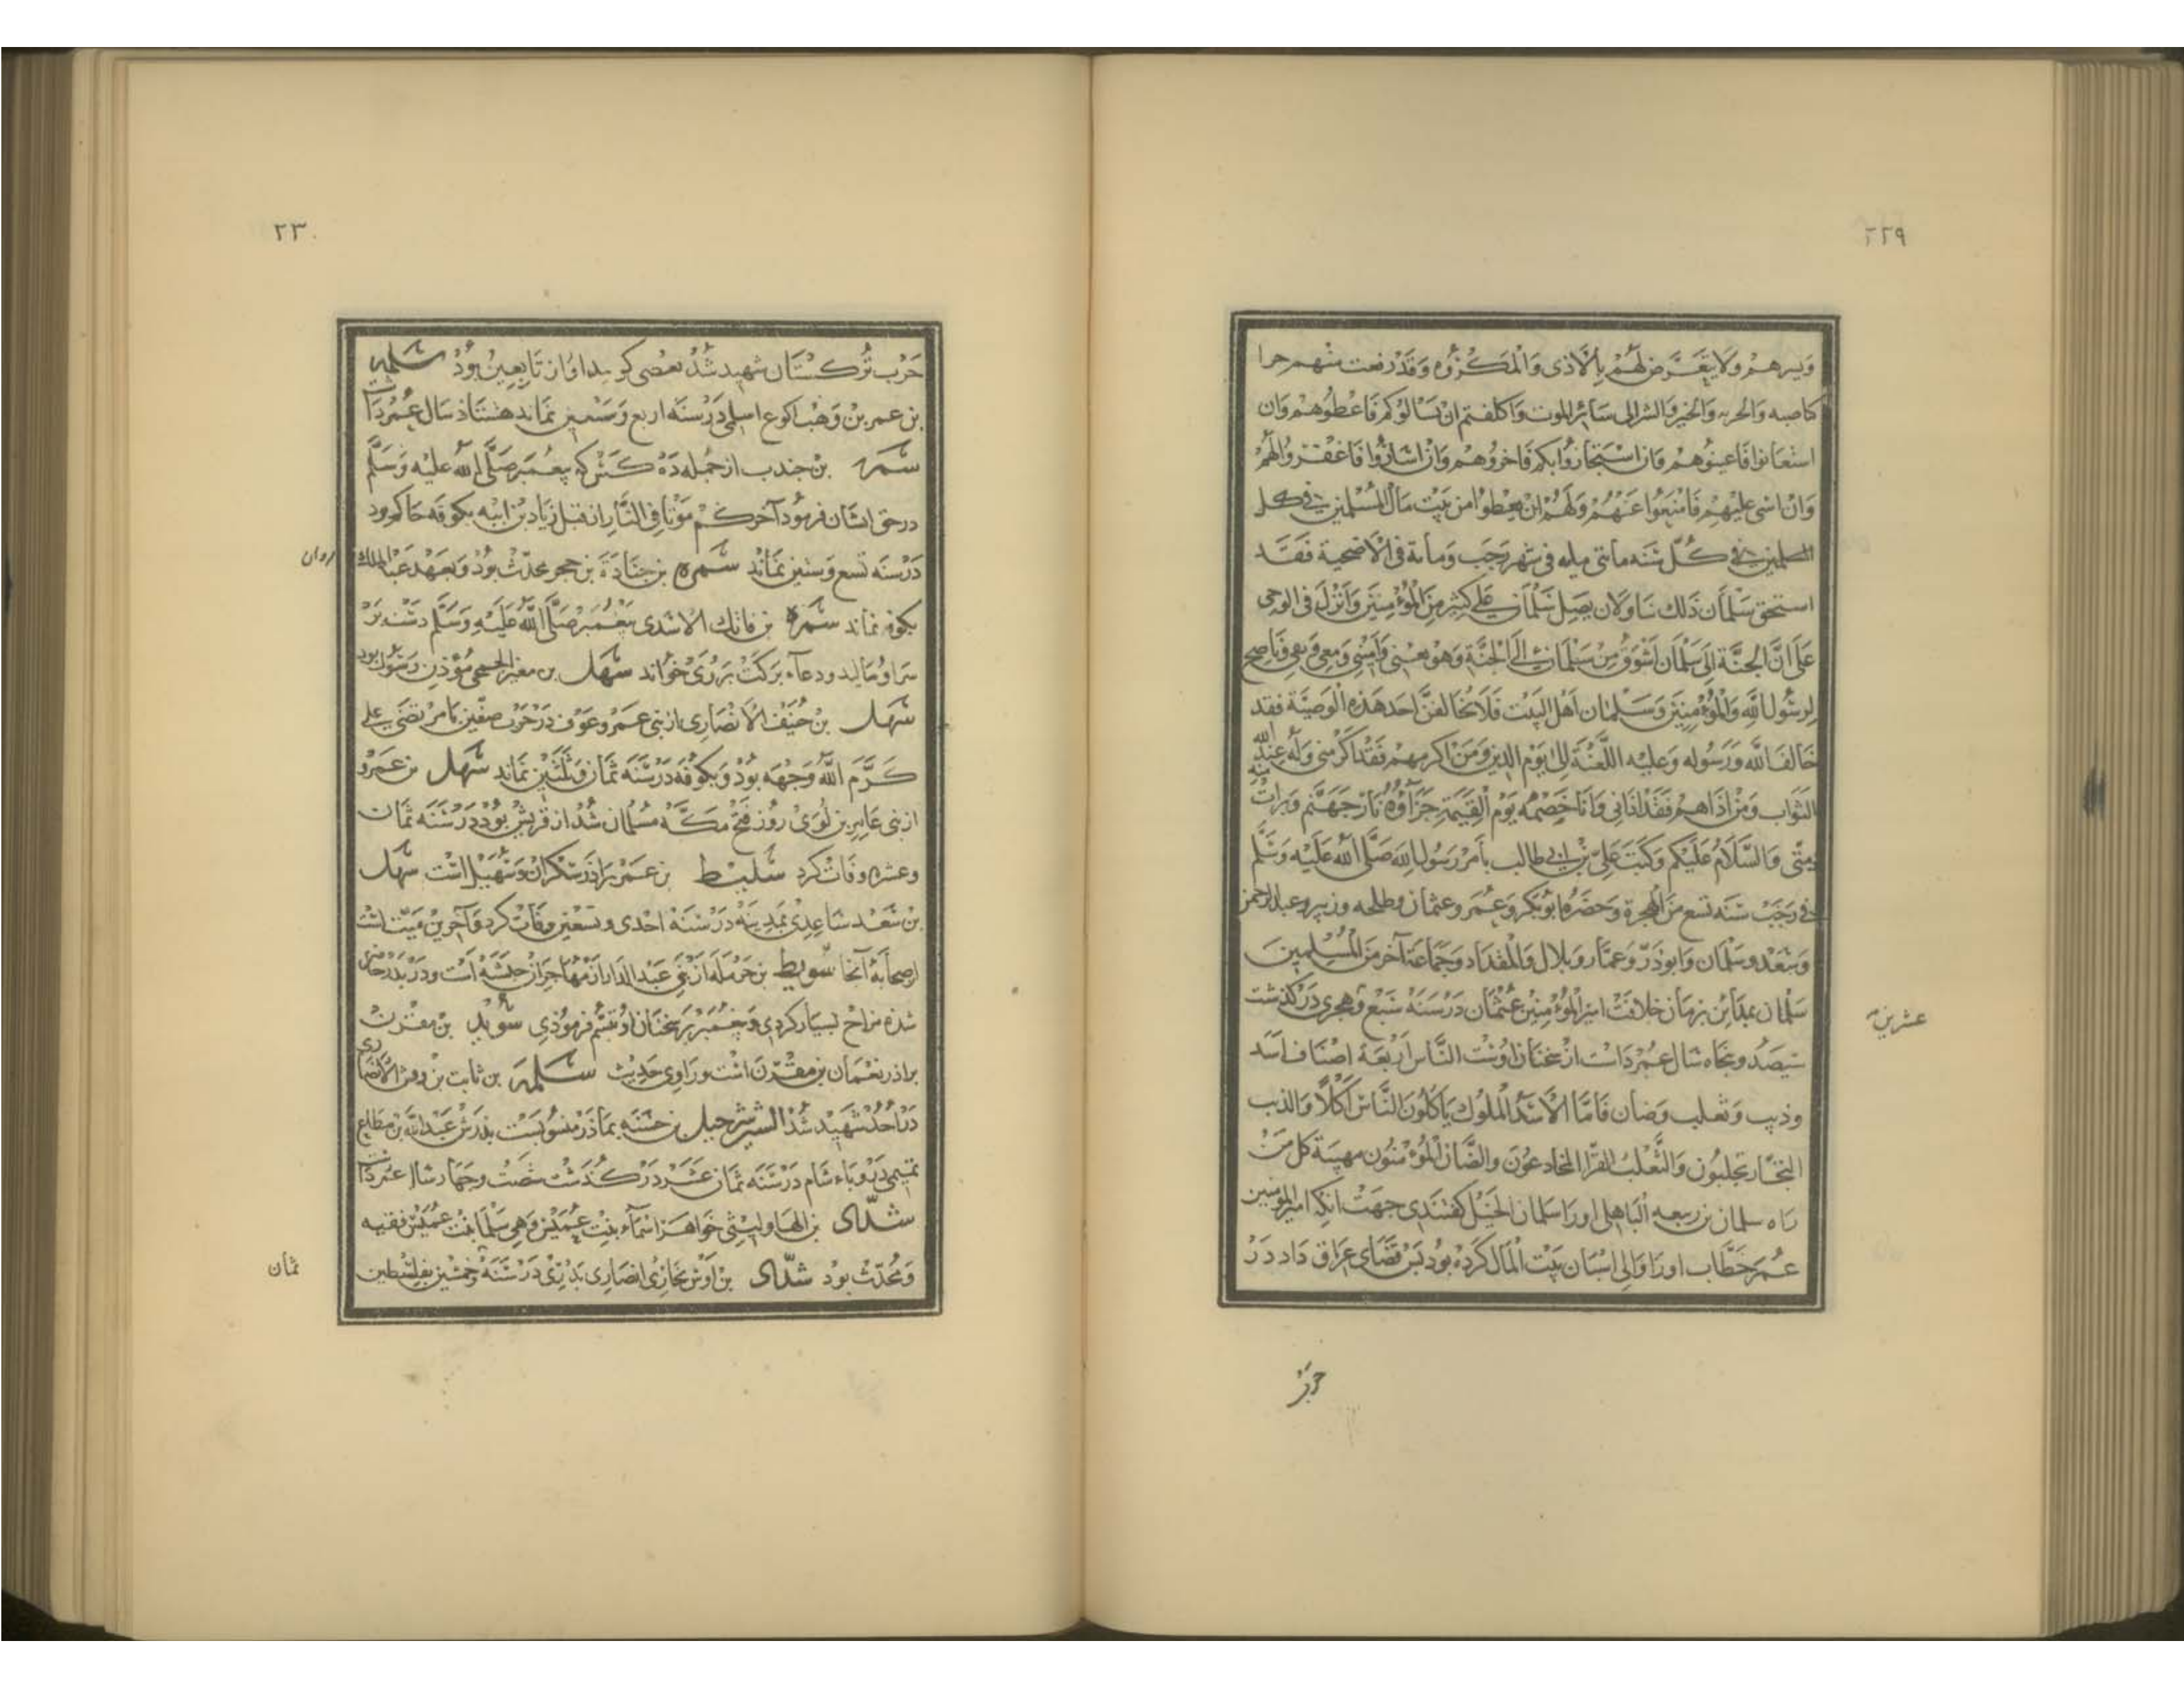 ٢٢٩
وبرهم ولا يتعرض لهم بالاذى والمكروه وقد رفعت منهم جزا
والخير والشر الى سائر الموت واكلفتم ان يسالوكم فاعطوهم وان
استعانوا فاعينوهم وان استجاروا بكم فاخروهم وان اساؤا فاغفروا لهم
وان اسى عليهم فامنعوا عنهم ولهم ان يعطوا من بيت مال المسلمين فى كل
المسلمين فى كل سنه مأتى حله فى شهر رجب ومأة فى الاضحية فقد
استحق سلمان ذلك منا ولان فضل سلمان على كثير من المؤمنين وانزل فى الوحى
على ان الجنة الى سلمان اشوق من سلمان الى الجنة وهو تقى وناصح
لرسول الله والمؤمنين وسلمان اهل البيت فلا يخالفن احد هذه الوصية فقد
خالف الله ورسوله وعليه اللعنة الى يوم الدين ومن اكرمهم فقد اكرمنى وله عند الله
الثواب ومن اذاهم فقد اذانى وانا خصمه يوم القيمة جزاؤه نار جهنم وبرات منه
ذمتى والسلام عليكم وكتب على بن ابى طالب بامر رسول الله صلى الله عليه وسلم
فى رجب سنه تسع من الهجرة وحضره ابوبكر وعمر وعثمان وطلحه وزبير وعبدالرحمن
وسعد وسلمان وابوذر وعمار وبلال والمقداد وجماعة آخر من المسلمين
سلمان بمداين بزمان خلافت امير المؤمنين عثمان در سنه سبع و هجرى در كذشت
عشرين
سيصد و پنجاه سال عمر داشت از سخنان اوست الناس اربعة اصناف اسد
وذيب وثعلب وضان فاما الاسد الملوك ياكلون الناس اكلا والذيب
التجار يجلبون والثعلب القرا المخادعون والضان المؤمنون كل من
راه سلمان بن ربيعه الباهلى اورا سلمان الخيل كفتندى جهت آنكه امير المؤمنين
عمر خطاب اورا والى اسبان بيت المال كرده بود پس قضاى عراق داد در
حرب
٢٣٠
حرب تركستان شهيد شد بعضى كويند او از تابعين بود سلمه
بن عمر بن وهب اكوع اسلمى در سنه اربع وسبعين نماند هشتاذ سال عمر داشت
سمره بن جندب از جمله ده كس كه پيغمبر صلى الله عليه وسلم
در حق ايشان فرمود آخركم موتا فى النار از قبل زياد بن ابيه بكوفه حاكم بود
در سنه تسع وستين نماند سمره بن جنادة بن حجر محدث بود و بعهد عبدالملك
مروان
بكوفه نماند سمره بن فاتك الاسدى پيغمبر صلى الله عليه وسلم دست بر
سر او ماليد ودعاء بركت بر وى خواند سهل بن الجمحى مؤذن رسول بود
سهل بن حنيف الانصارى از بنى عمرو عوف در حرب صفين با مرتضى على
كرم الله وجهه بود و بكوفه در سنه ثمان وثلثين نماند سهل بن عمرو
از بنى عامر بن لوى روز فتح مكه مسلمان شد از قريش بود در سنه ثمان
وعشره وفات كرد سليط بن عمر براذر سكران وسهيل است سهل
بن سعد ساعدى بمدينه در سنه احدى وتسعين وفات كرد و آخرين ميت است
از صحابه آنجا سويط بن حرمله از بنى عبد الدار از مهاجران حبشه است و در بدر حاضر
شده مزاح بسيار كردى و پيغمبر بر سخنان او تبسم فرموذى سويد بن مقرن
براذر نعمان بن مقرن است و راوى حديث سلمه بن ثابت بن وقش الانصارى
در احد شهيد شد الشين شرحبيل بن حسنه بماذر منسوبست پدرش عبدالله بن مطاع
تميمى در وباء شام در سنه ثمان عشر در كذشت شصت وچهار سال عمر داشت
شداد بن الهاد ليثى خواهر اسماء بنت عميس وهى سلما بنت عميس فقيه
ومحدث بود شداد بن اوس نجارى انصارى بدرى در سنه وخمسين بفلسطين
ثمان